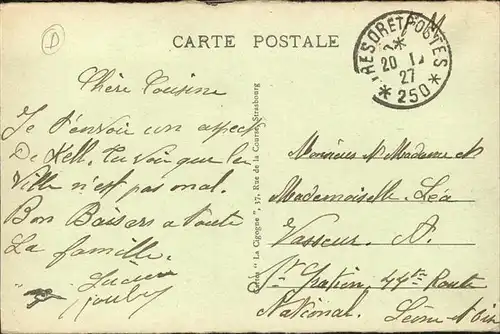 CARTE POSTALE
TRESOR ET POSTES
20
27
* 250 *
Chère Cousine
Je t'envoie un aspect
De Kehl. tu voie que la
Ville n'est pas mal.
Bon Baisers a toute
La famille.
Lucien
"La Cigogne", 37, Rue de la Course, Strasbourg
Monsieur et Madame et
Mademoiselle Léa
Vasseur. A.
St Gratien, 44 Route
National. Seine et Oise